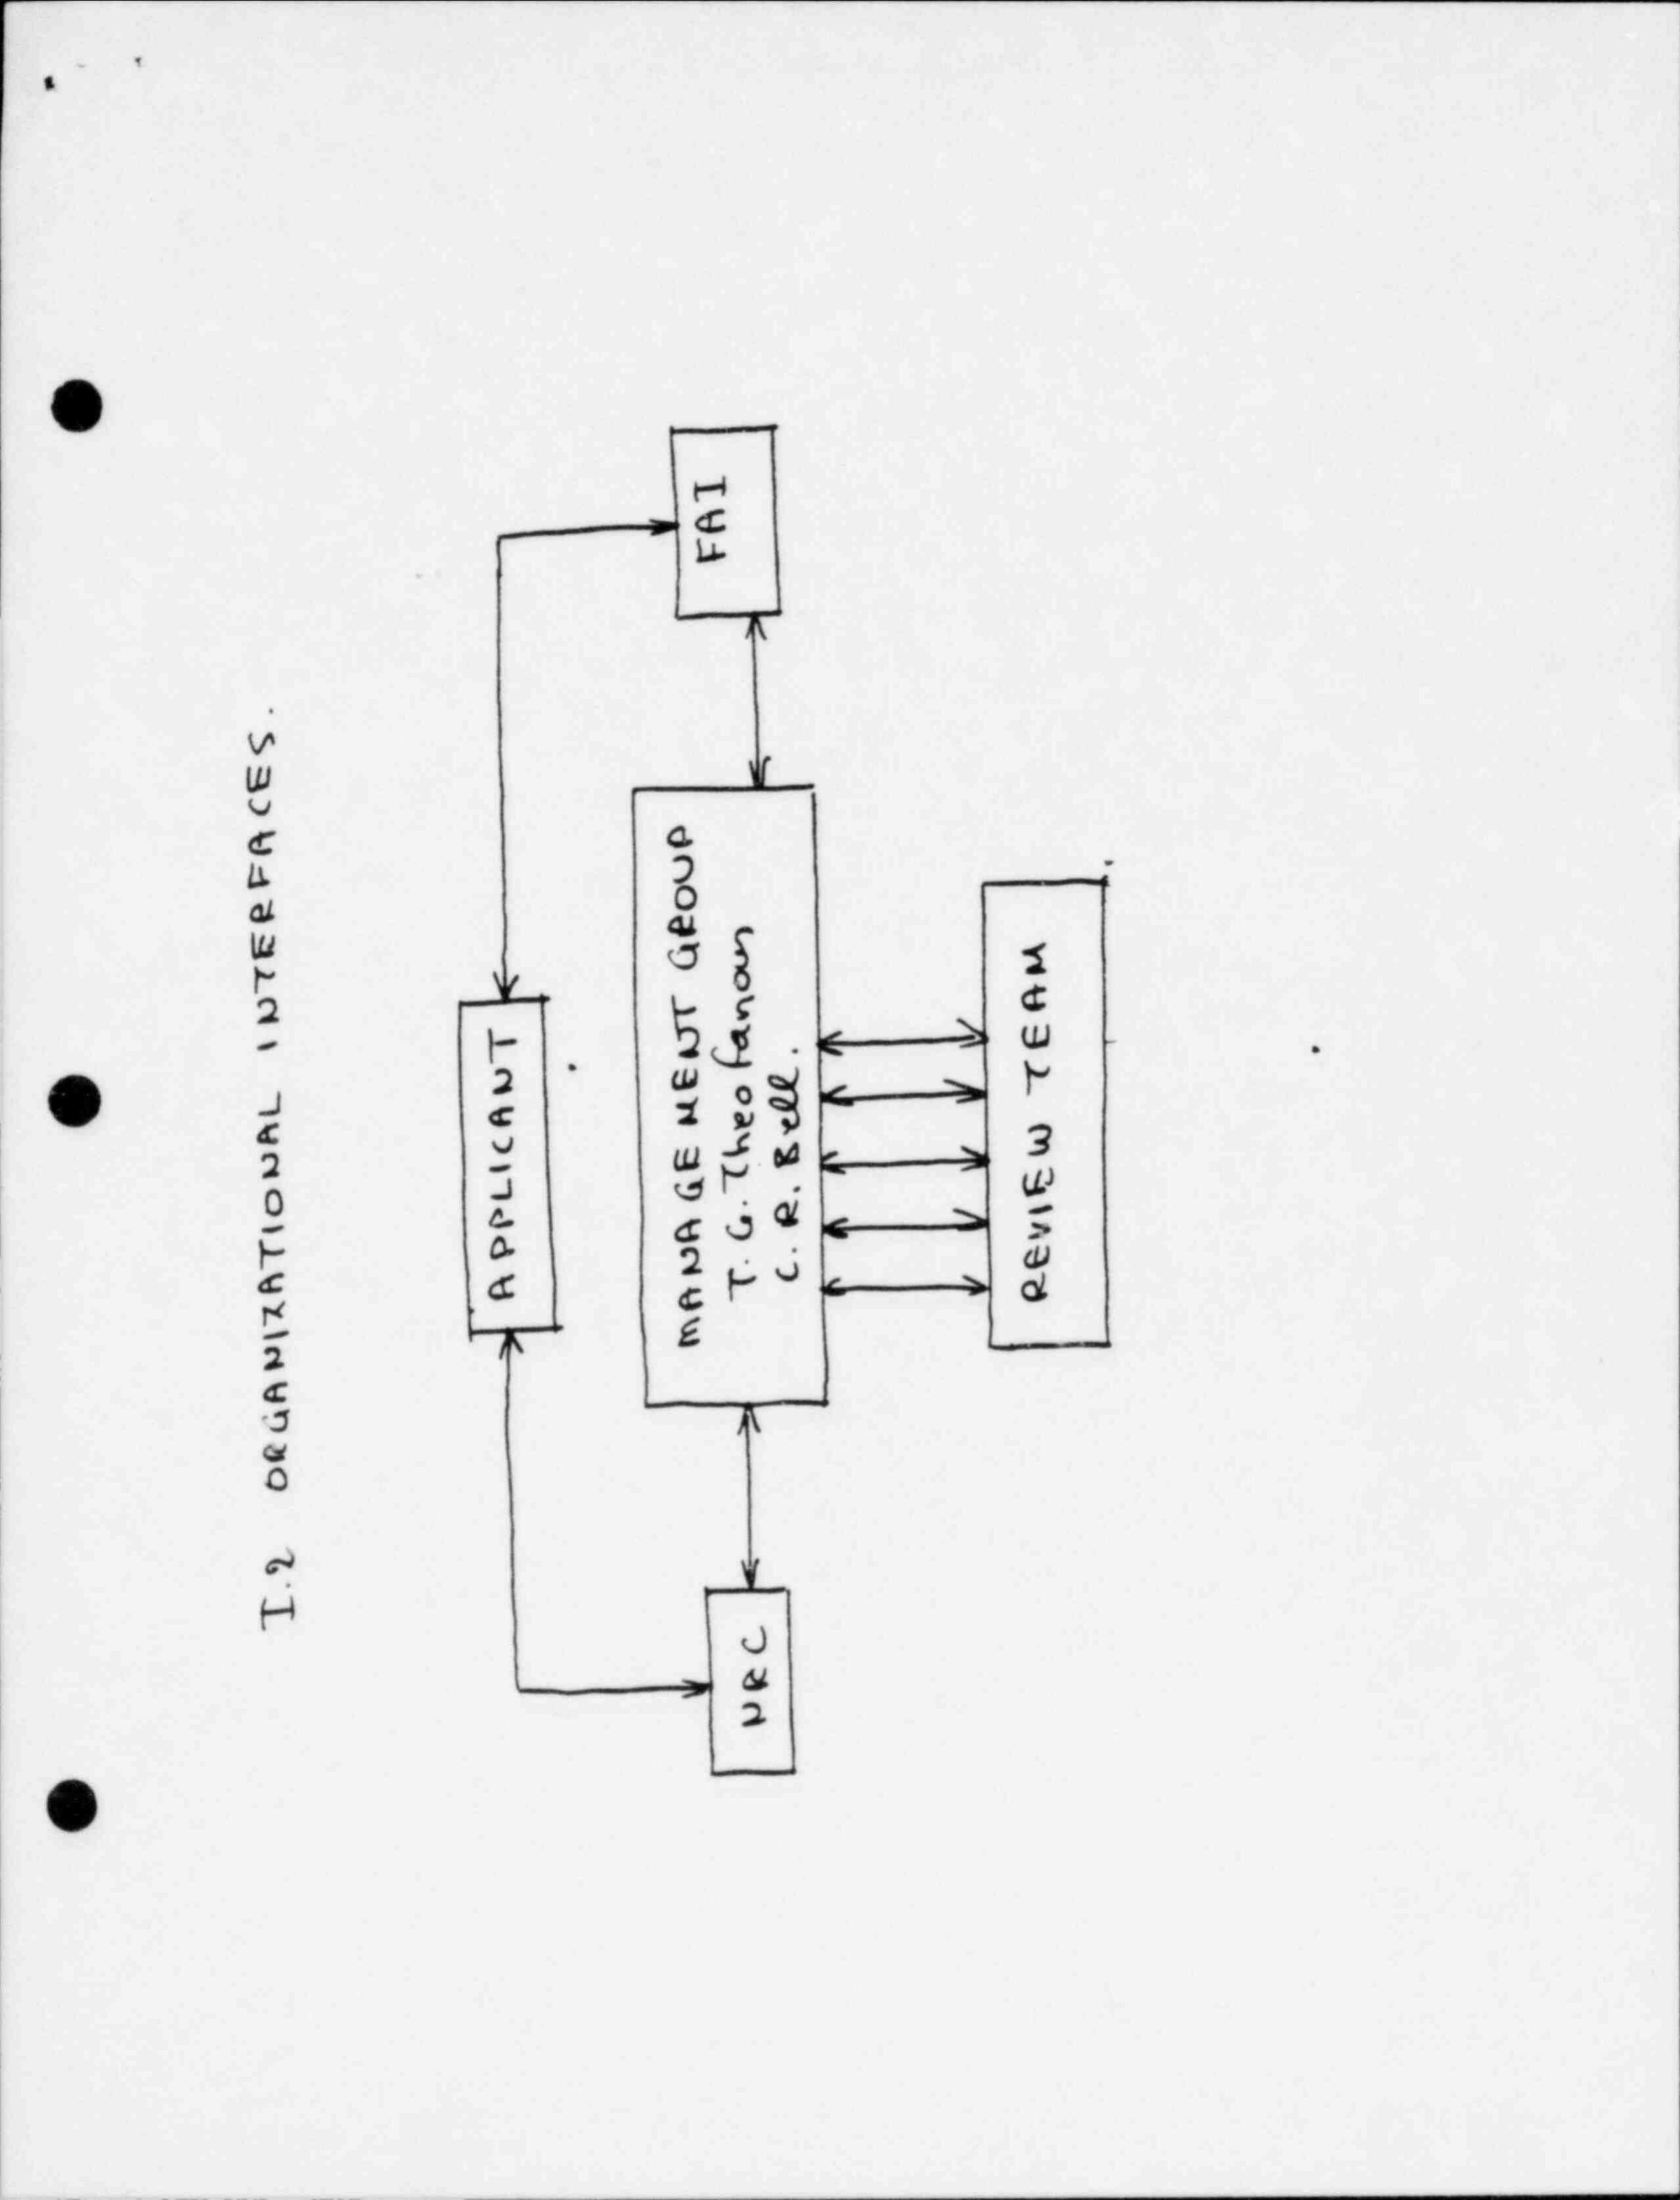 I.2 ORGANIZATIONAL INTERFACES.
APPLICANT
NRC
MANAGEMENT GROUP
T. G. Theofanous
C. R. Bell.
FAI
REVIEW TEAM